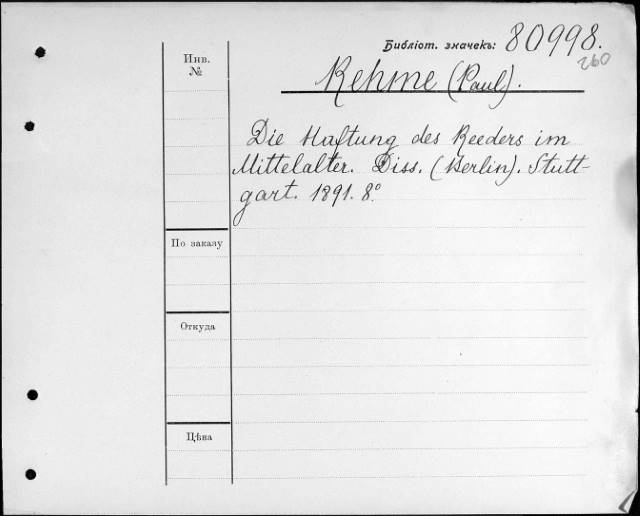 Библіот. значекъ: 80998.
260
Инв.
№
Rehme (Paul).
Die Haftung des Reeders im
Mittelalter. Diss. (Berlin). Stutt-
gart. 1891. 8°.
По заказу
Откуда
Цѣна